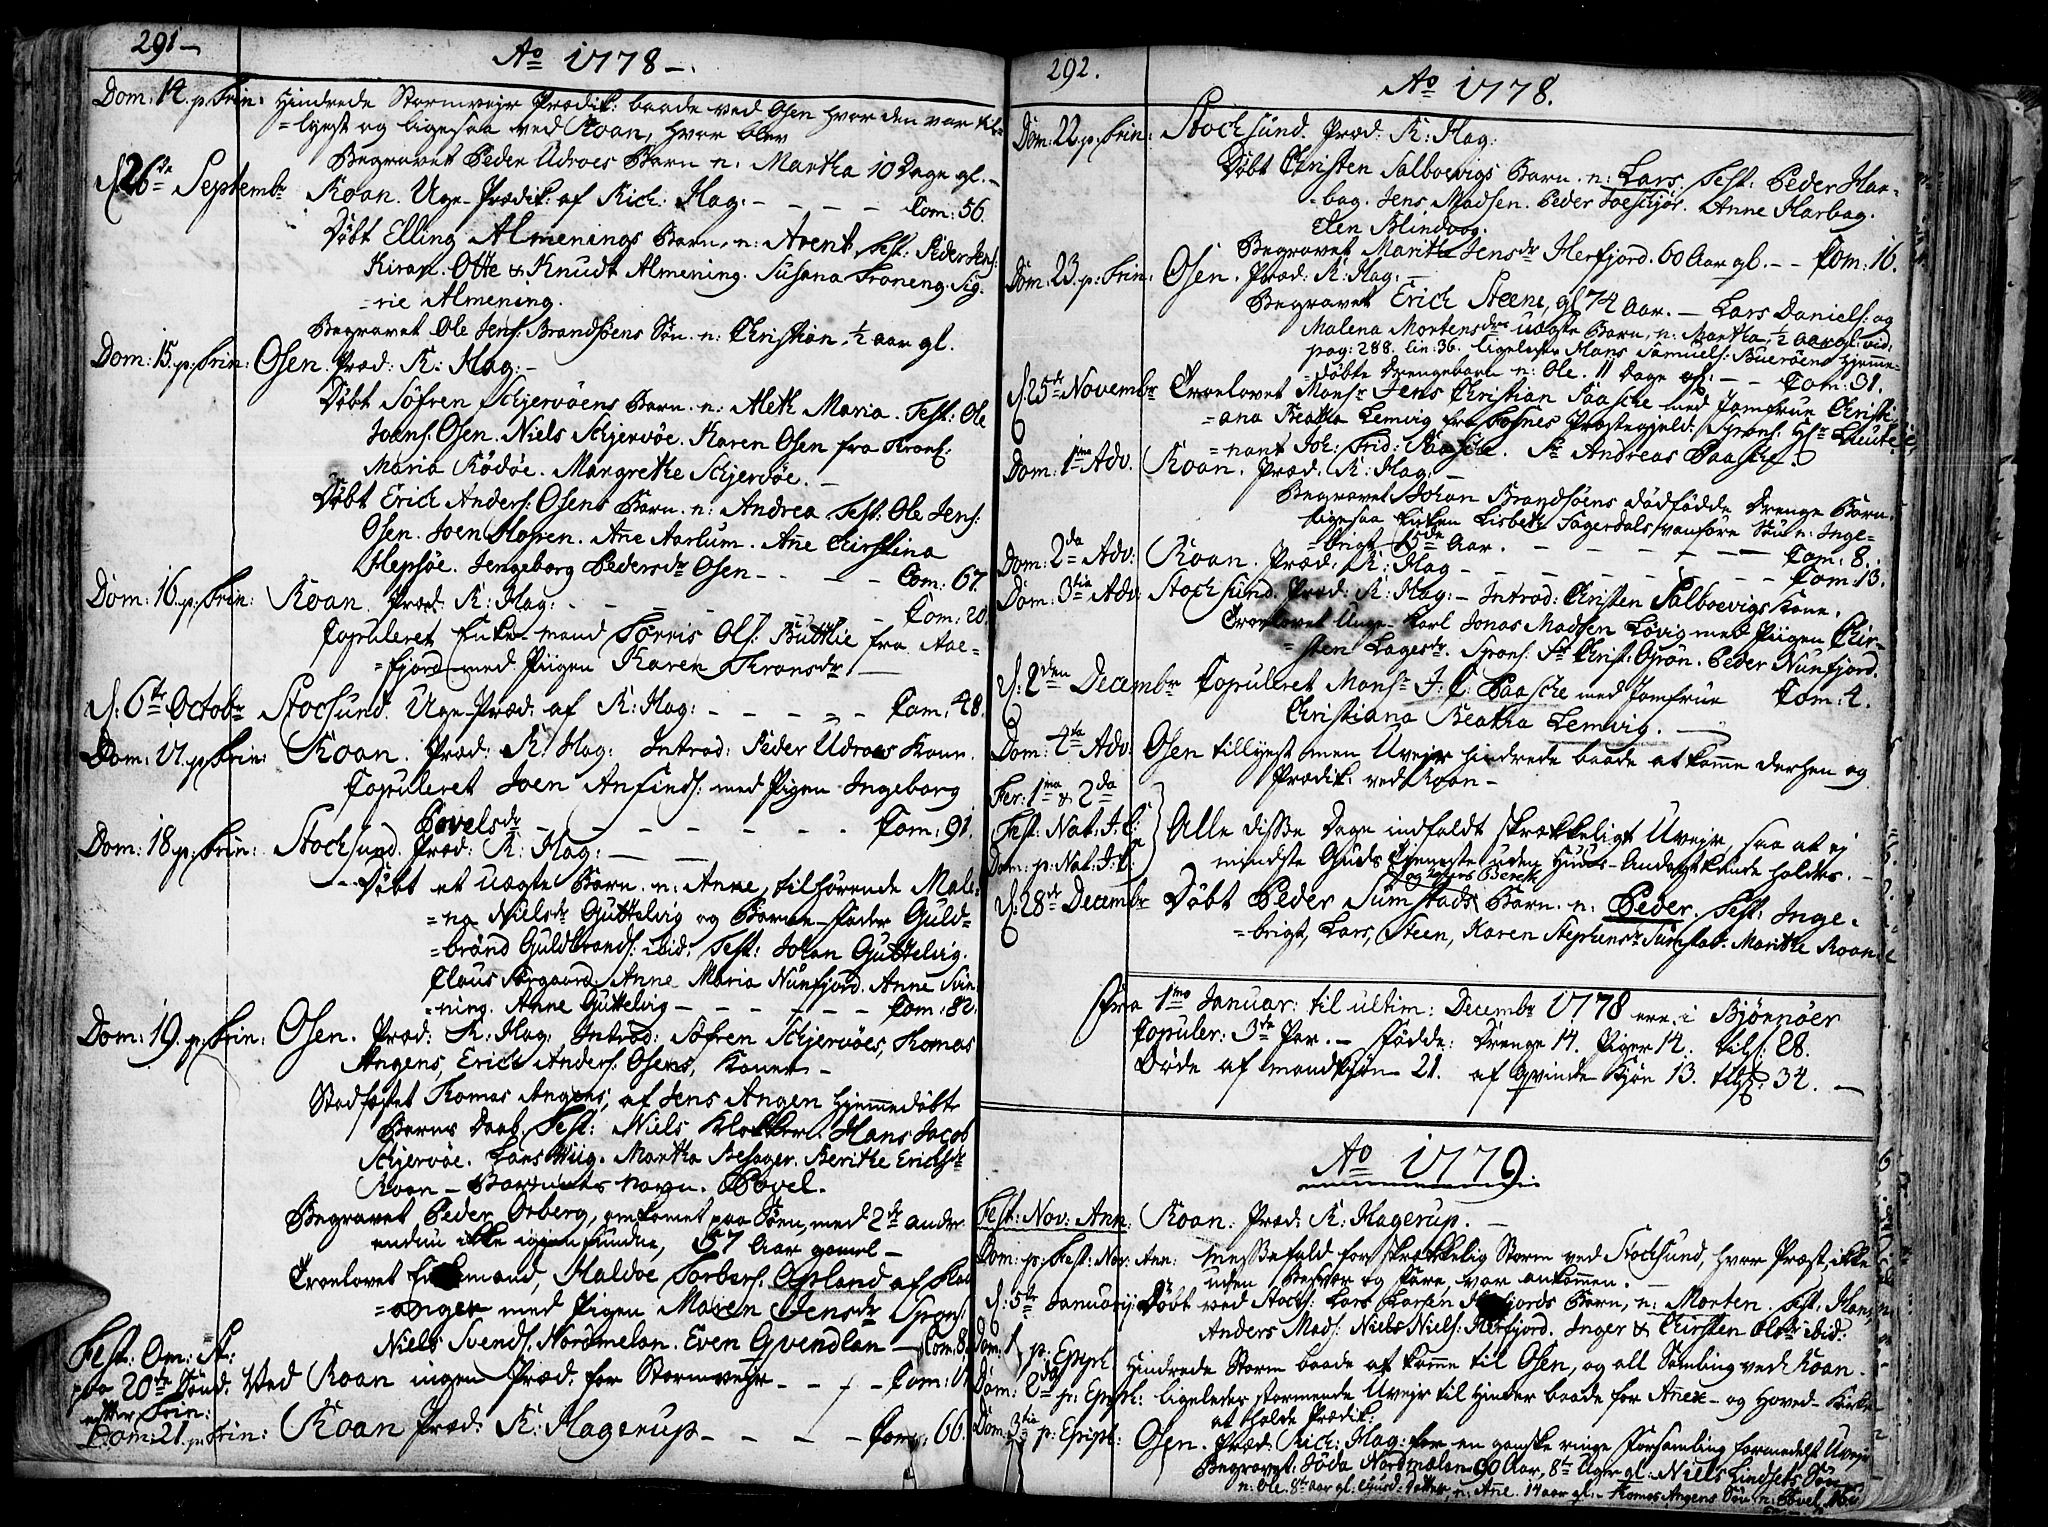 291.
Ao 1778.
Dom: 14. p. Trin: Hindrede Stormvejr Prædik: baade ved Osen hvor den var til-
=lyest og ligesaa ved Roan, hvor blev
Begravet Peder Udroes Barn n: Martha 10 Dage gl.
d. 26de Septembr Roan. Uge-Prædik: af Rich: Hag: Com: 56.
Døbt Elling Almenings Barn, n: Arent. Test: Peder Jens:
Kiran. Otte & Knudt Almening. Susana Troneng. Sig-
=rie Almening.
Begravet Ole Jens: Brandsøens Søn. n: Christian, ½ aar gl.
Dom: 15. p. Trin: Osen. Præd: R: Hag:
Døbt Søfren Schjervøens Barn. n: Aleth Maria. Test: Ole
Joens: Osen. Niels Schjervøe. Karen Osen fra
Maria Rødøe. Margrethe Schjervøe.
Døbt Erich Anders: Osens Barn. n: Andrea. Test: Ole Jens:
Osen. Joen Hofren. Ane Aarlum. Ane Christina
Hepsøe. Jengeborg Pedersdr Osen Com: 67.
Dom: 16. p. Trin: Roan. Præd: R: Hag: Com: 20.
Copuleret Enke-mand Tørris Ols: Buttlie fra Aae-
=fjord med Piigen Karen
d: 6te Octobr Stocsund. Uge-Præd: af R: Hag: Com: 48.
Dom: 17. p. Trin: Roan. Præd: R: Hag: Introd: Peder Udroes Kone.
Copuleret Joen Anfinds: med Pigen Ingeborg
Povelsdr Com: 91.
Dom: 18. p. Trin: Stochsund. Præd: R: Hag:
Døbt et uægte Barn. n: Anne, tilhørende Male-
=na Nielsdr Guttelvig og Barne-fader Guld-
=brand Guldbrands: ibid: Test: Johan Guttelvig.
Claus Sørgaard. Anne Maria Nunfjord. Anne Svin-
=ning. Anne Guttelvig Com: 82.
Dom: 19. p. Trin: Osen. Præd: R: Hag: Introd: Søfren Schjervøes, Thomas
Angens, Erich Anders: Osens, Koner
Stadfæstet Thomas Angens, af Jens Angen hjemmedøbte
Barns Daab. Test: Niels Klokker. Hans Jacob
Schjervøe. Lars Wiig. Martha Besager. Berithe Erichsdr
Roan - Barnets navn. Povel.
Begravet Peder Orberg, omkomet paa Søen, med 2de andre
endnu ikke igienfundne, 57 Aar gamel
Troelovet Enkemand, Haldoe Torbers: Opland af
=anger med Pigen Maren Jensdr Spons:
Niels Svends: Nordmelan. Even Qvendlan Com: 8
Fest: Om: St:
paa 20de Sønd. Ved Roan ingen Præd: for Stormvejr Com:
efter Trin:
Dom: 21. p. Trin: Roan Præd: R: Hagerup Com: 66.
292.
Ao 1778.
Dom: 22. p. Trin: Stocksund. Præd: R: Hag:
Døbt Christen Salboevigs Barn. n: Lars. Test: Peder Har-
=bag. Jens Madsen. Peder Anne Harbag.
Elen Blindvog.
Begravet Marith Jensdr Herfjord. 60 Aar gl. Com: 16.
Dom: 23. p. Trin: Osen. Præd: R: Hag:
Begravet Erich Steene, gl 74 Aar. Lars Daniels: og
Malena Mortensdrs uægte Barn, n: Martha, ½ aar gl. vid:
pag: 288. lin: 36. ligeledes Hans Samuels: Buerøens hjemme-
=døbte Drengebarn n: Ole. 11 Dage gl. Com: 31.
d. 25de Novembr Troelovet Monsr Jens Christian Paasche med Jomfrue Christi-
=ana Beatha Lemvig, fra Fosnes Præstegjeld: Spons: Hr Lieute-
=nant Joh: Frid: Paasche. Sr Andreas Paasche.
Dom: 1ma Adv. Roan. Præd: R: Hag:
Begravet Johan Brandsøens dødfødde Drenge Barn,
ligesaa Enken Lisbeth Fagerdals vanføre Søn n: Inge-
=brigt Aar. Com: 8.
Dom: 2da Adv: Roan. Præd: R: Hag Com: 13.
Dom: 3tia Adv: Stocksund. Præd: R: Hag: Introd: Christen Salboevigs Kone.
Troelovet Unge-Karl Jonas Madsen Løvig med Piigen Chir-
=sten Lagesdr. Spons: Sr Christ: Grøn. Peder Nunfjord.
d: 2den Decembr Copuleret Monsr J: C: Paasche med Jomfrue Com: 4.
Christiana Beatha Lemvig.
Dom: 4ta Adv: Osen tillyest men Uvejr hindrede baade at komme derhen og
Prædik: ved Roan
Fer: 1ma & 2da
Fest: Nat: J: C: Alle disse Dage indfaldt skrækkeligt Uvejr, saa at ej
Dom: p: Nat: J: C: mindste Guds Tjeneste uden Huus-Andagt kunde holdes.
d: 28de Decembr Døbt Peder Sumstads Barn. n: Peder. Test: Inge-
=brigt, Lars, Steen, Karen Stephensdr Sumstad. Marithe Roan
Fra 1mo Januar: til ultim: Decembr 1778 ere i Bjørnøer
Copuler: 3de Par. Fødde: Drenge 14. Piger 14. tils: 28.
Døde af mandkjøn 21. af Qvinde Kjøn 13. tils: 34.
Ao 1779.
Fest: Nov: Ann: Roan. Præd: R: Hagerup.
Dom: p: Fest: Nov: Ann: Messefald for skrækkelig Storm ved Stocksund, hvor Præst, ikke
uden Besvær og Fare, var ankommen.
d: 5te Januarij: Døbt ved Stocs: Lars Larsen Barn, n: Morten. Test: Hans,
Anders Mads: Niels Niels: Herfjord. Inger & Chirsten ibid:
Dom: 1 p: Epiph Hindrede Storm baade at komme til Osen, og all Samling ved Roan.
Dom: 2da p: Epiph: ligeledes stormende Uvejr til Hinder baade for Anex- og Hoved-Kirke
at holde Prædik:
Dom: 3tia p: Epiph: Osen. Præd: Rich: Hag: for en ganske ringe Forsamling formedelst Uvejr
Begravet: Joda Nordmælan 90 Aar, 8te Uger gl: Niels Lindsets Søn
n: Ole. 8te aar gl: n: Ane. 14 aar gl. Thomas Angens Søn n: Povel